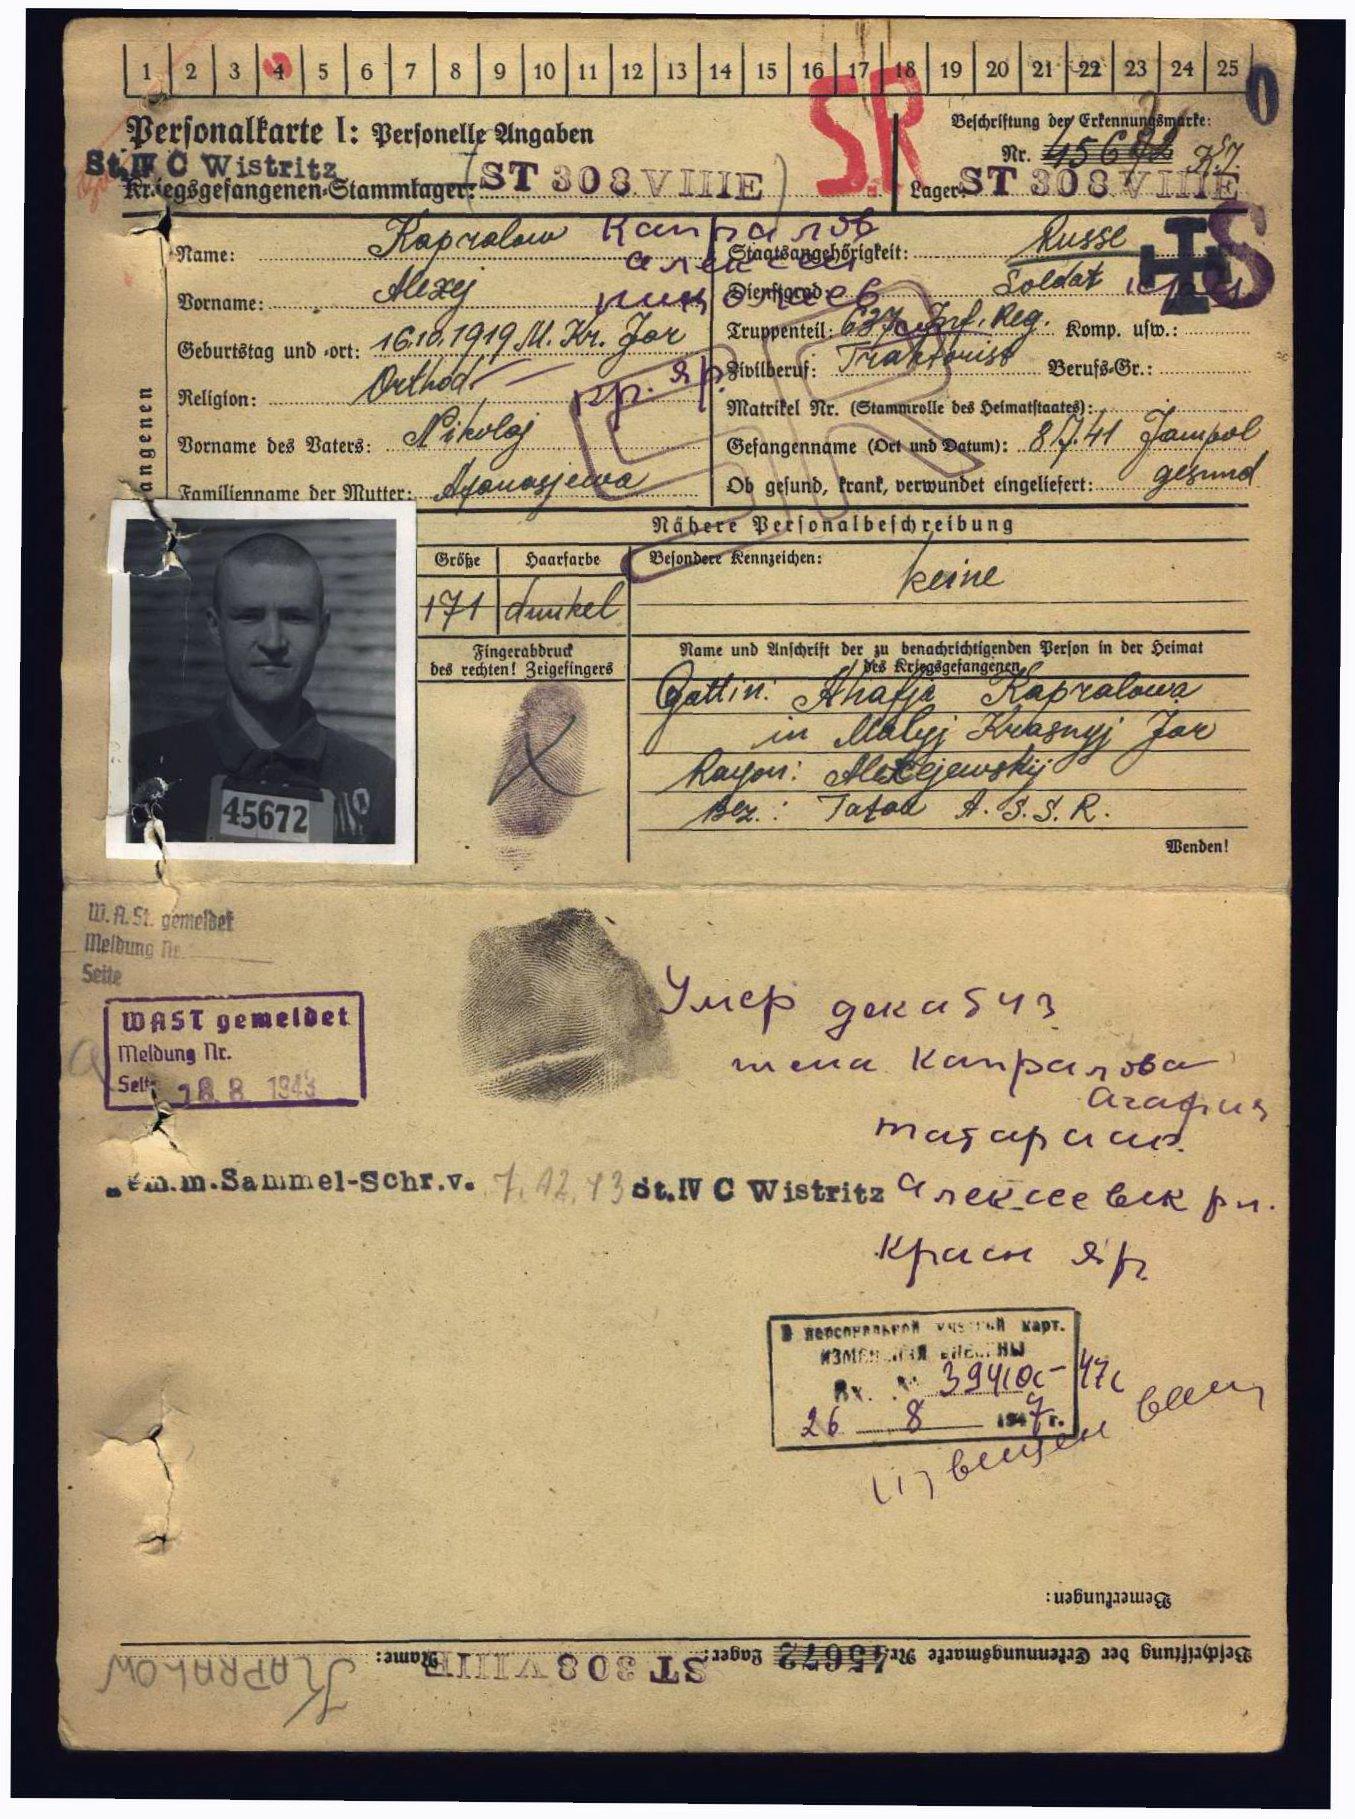 1 2 3 4 5 6 7 8 9 10 11 12 13 14 15 16 17 18 19 20 21 22 23 24 25
0
SR
Personalkarte I: Personelle Angaben
Beschriftung der Erkennungsmarke:
Nr. 45672
St. IV C Wistritz
Kriegsgefangenen-Stammlager: (ST 308 VIIIE)
Lager: ST 308 VIIIE
Name: Kapralow Капралов
Vorname: Alexej Алексей
Geburtstag und -ort: 16.10.1919 M. Kr. Jar
Religion: Orthod
Vorname des Vaters: Nikolaj
Familienname der Mutter: Afanasjewa
Staatsangehörigkeit: Russe
S
Dienstgrad: Soldat
Truppenteil: 637 Inf. Reg. Komp. usw.:
Zivilberuf: Traktorist Berufs-Gr.:
Matrikel Nr. (Stammrolle des Heimatstaates):
Gefangenname (Ort und Datum): 8/7.41 Jampol
Ob gesund, krank, verwundet eingeliefert: gesund
кр. яр.
angenen
Nähere Personalbeschreibung
Größe Haarfarbe Besondere Kennzeichen:
171 dunkel keine
Fingerabdruck
des rechten! Zeigefingers
Name und Anschrift der zu benachrichtigenden Person in der Heimat
des Kriegsgefangenen
Gattin: Ahafja Kapralowa
in Malyj Krasnyj Jar
Rayon: Alexejewskij
Bez.: Tatar A. S. S. R.
Wenden!
45672
W.A.St. gemeldet
Meldung Nr.
Seite
WAST gemeldet
Meldung Nr.
Seite 28. 8. 1943
Умер декаб 43
жена Капралова
Агафия
татарская
Алексеевск рн.
Красн Яр
m.Sammel-Schr.v. 7.12.43 St. IV C Wistritz
В персональной учетной карт.
ИЗМЕНЕНИЯ ВНЕСЕНЫ
Вх. № 39410с-47с
26 8 1947г.
Bemerkungen:
Beschriftung der Erkennungsmarke Nr. 45672 Lager: ST 308 VIIIE Name: KAPRALOW